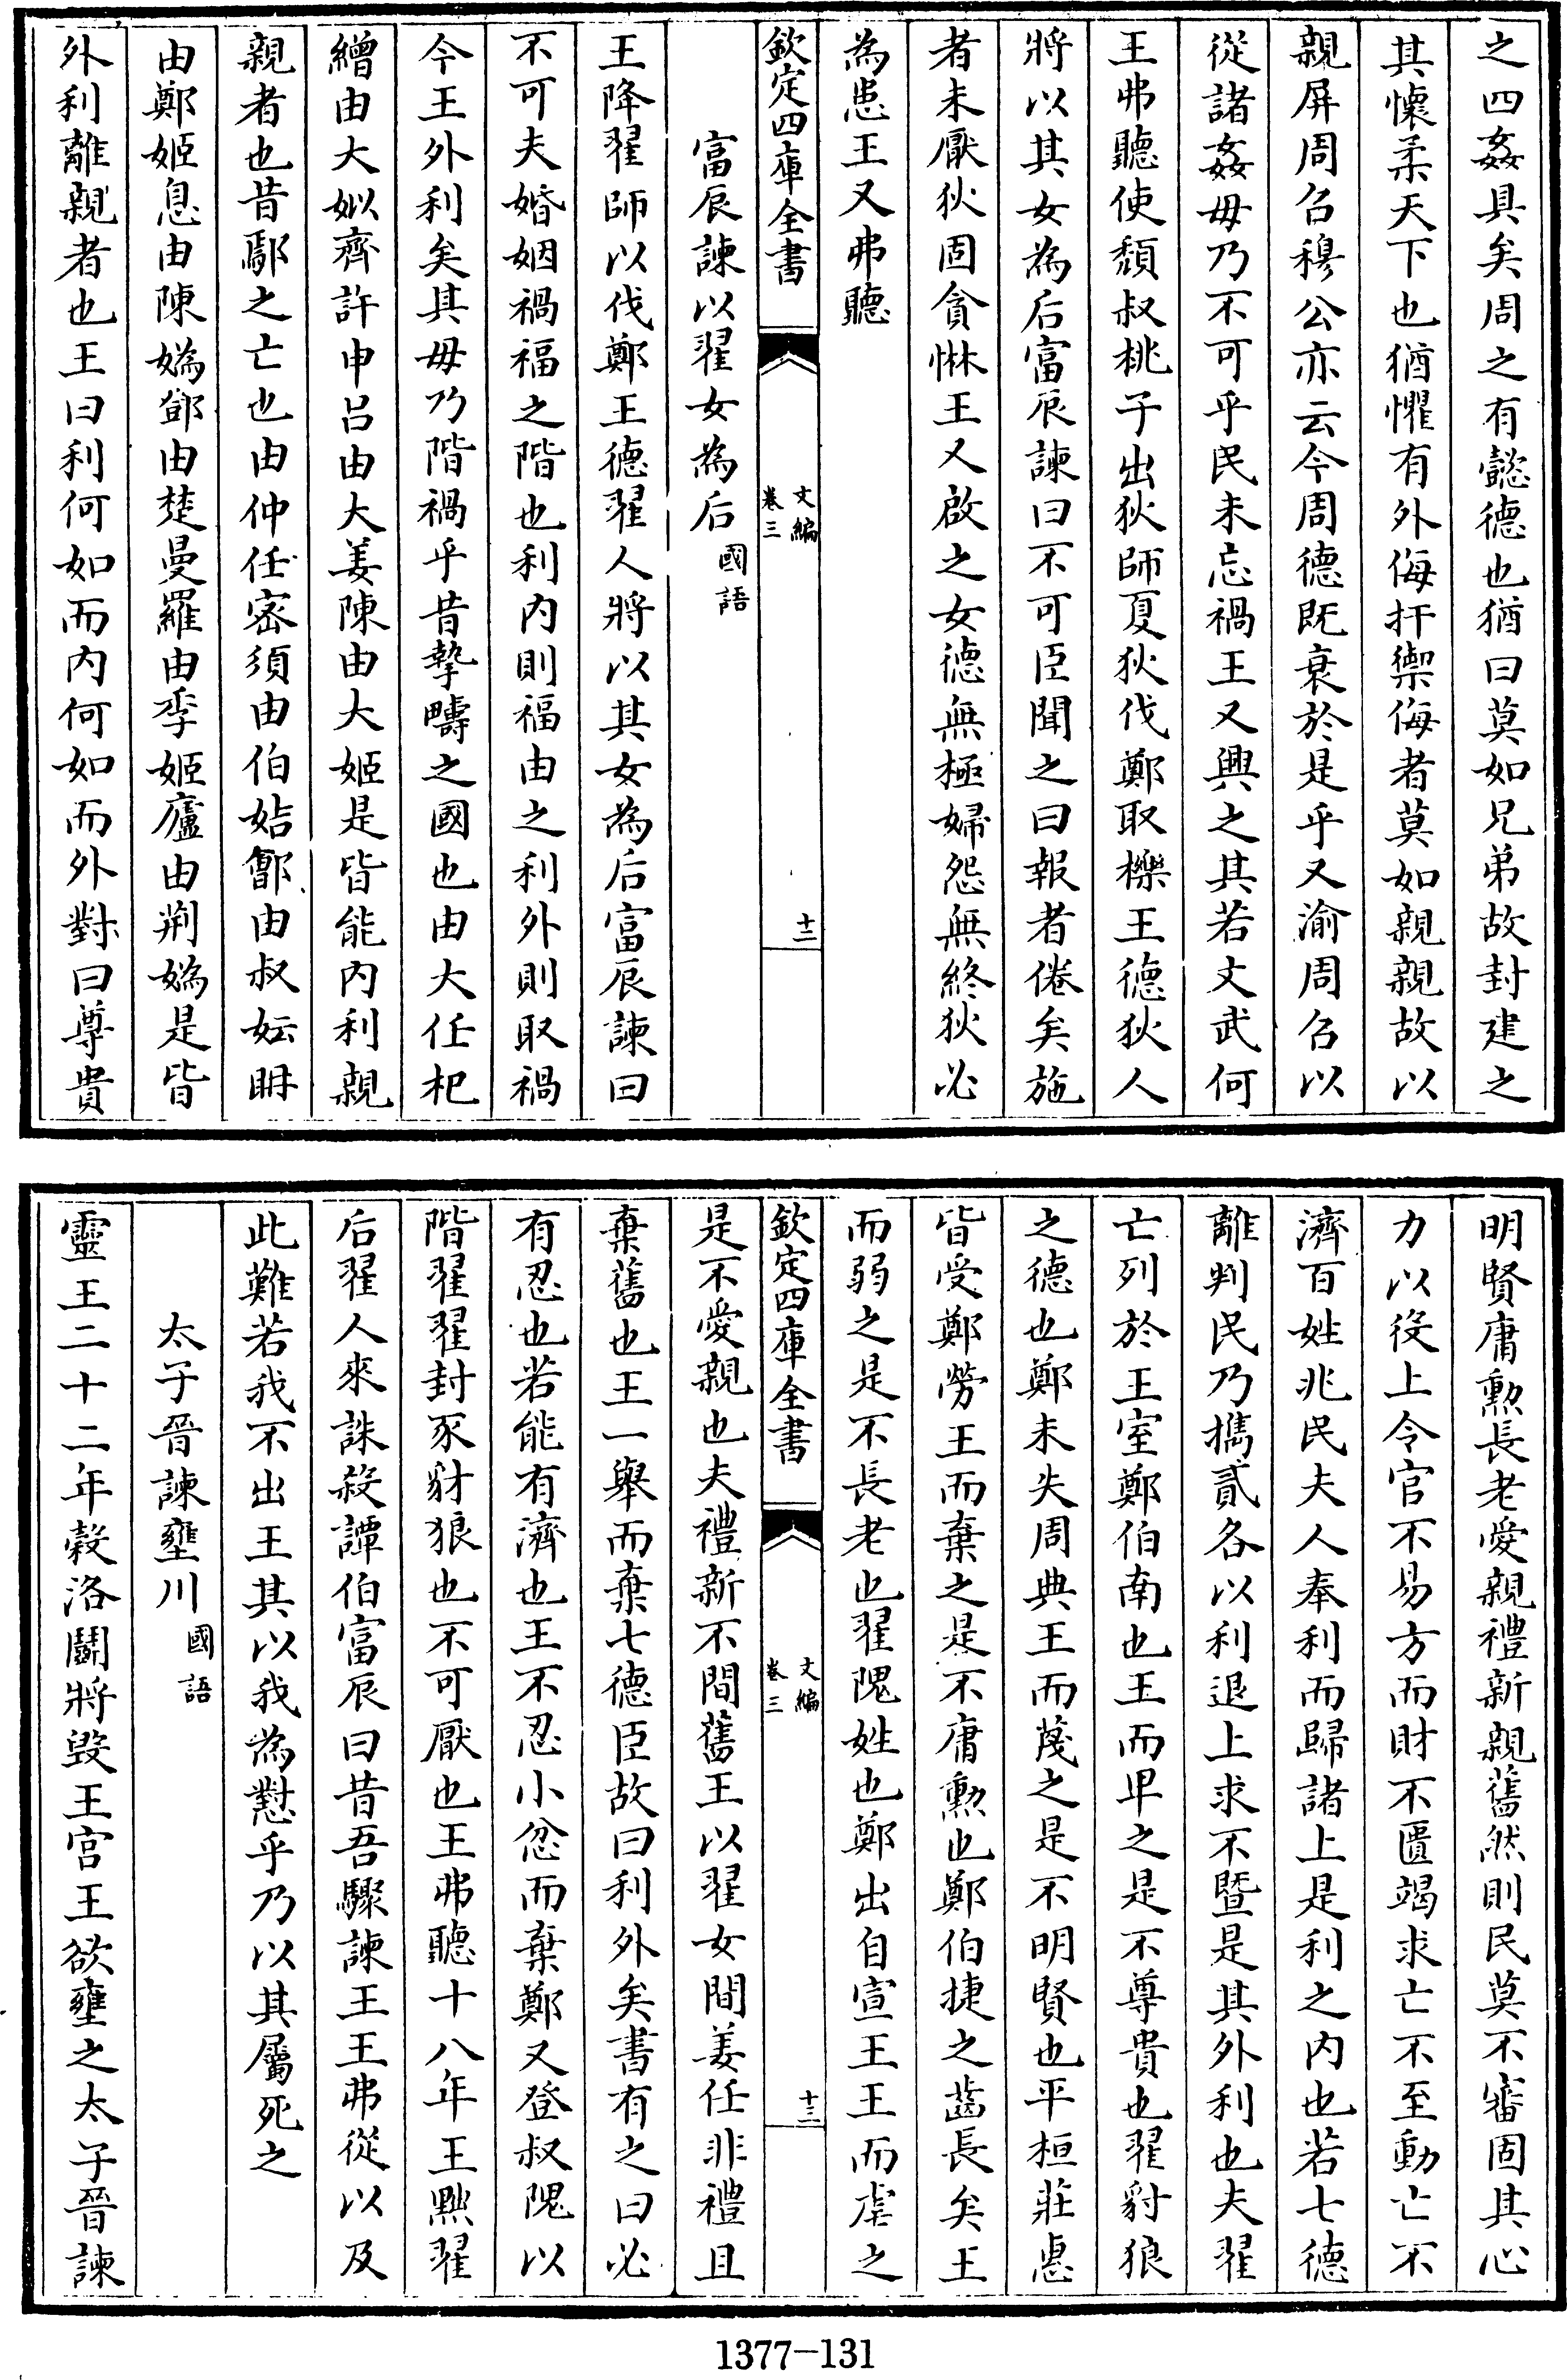 之四姦具矣周之有懿德也猶曰莫如兄弟故封建之
其懷柔天下也猶懼有外侮扞禦侮者莫如親親故以
親屏周召穆公亦云今周德既衰於是乎又渝周召以
從諸姦毋乃不可乎民未忘禍王又興之其若文武何
王弗聽使頽叔桃子出狄師夏狄伐鄭取櫟王德狄人
將以其女為后富辰諫曰不可臣聞之曰報者倦矣施
者未厭狄固貪惏王又啟之女德無極婦怨無終狄必
為患王又弗聽
欽定四庫全書
文編
卷三
十二
富辰諫以翟女為后國語
王降翟師以伐鄭王德翟人將以其女為后富辰諫曰
不可夫婚姻禍福之階也利內則福由之利外則取禍
今王外利矣其毋乃階禍乎昔摯疇之國也由大任杞
繒由大姒齊許申呂由大姜陳由大姬是皆能內利親
親者也昔鄢之亡也由仲任密須由伯姞鄶由叔妘聃
由鄭姬息由陳媯鄧由楚曼羅由季姬廬由荆媯是皆
外利離親者也王曰利何如而內何如而外對曰尊貴
明賢庸勲長老愛親禮新親舊然則民莫不審固其心
力以役上令官不易方而財不匱竭求亡不至動亡不
濟百姓兆民夫人奉利而歸諸上是利之內也若七德
離判民乃攜貳各以利退上求不暨是其外利也夫翟
亡列於王室鄭伯南也王而卑之是不尊貴也翟豺狼
之德也鄭未失周典王而蔑之是不明賢也平桓莊惠
皆受鄭勞王而棄之是不庸勲也鄭伯捷之齒長矣王
而弱之是不長老也翟隗姓也鄭出自宣王王而虐之
欽定四庫全書
文編
卷三
十三
是不愛親也夫禮新不間舊王以翟女間姜任非禮且
棄舊也王一舉而棄七德臣故曰利外矣書有之曰必
有忍也若能有濟也王不忍小忿而棄鄭又登叔隗以
階翟翟封豕豺狼也不可厭也王弗聽十八年王黜翟
后翟人來誅殺譚伯富辰曰昔吾驟諫王王弗從以及
此難若我不出王其以我為懟乎乃以其屬死之
太子晉諫壅川國語
靈王二十二年穀洛鬭將毀王宮王欲壅之太子晉諫
1377—131